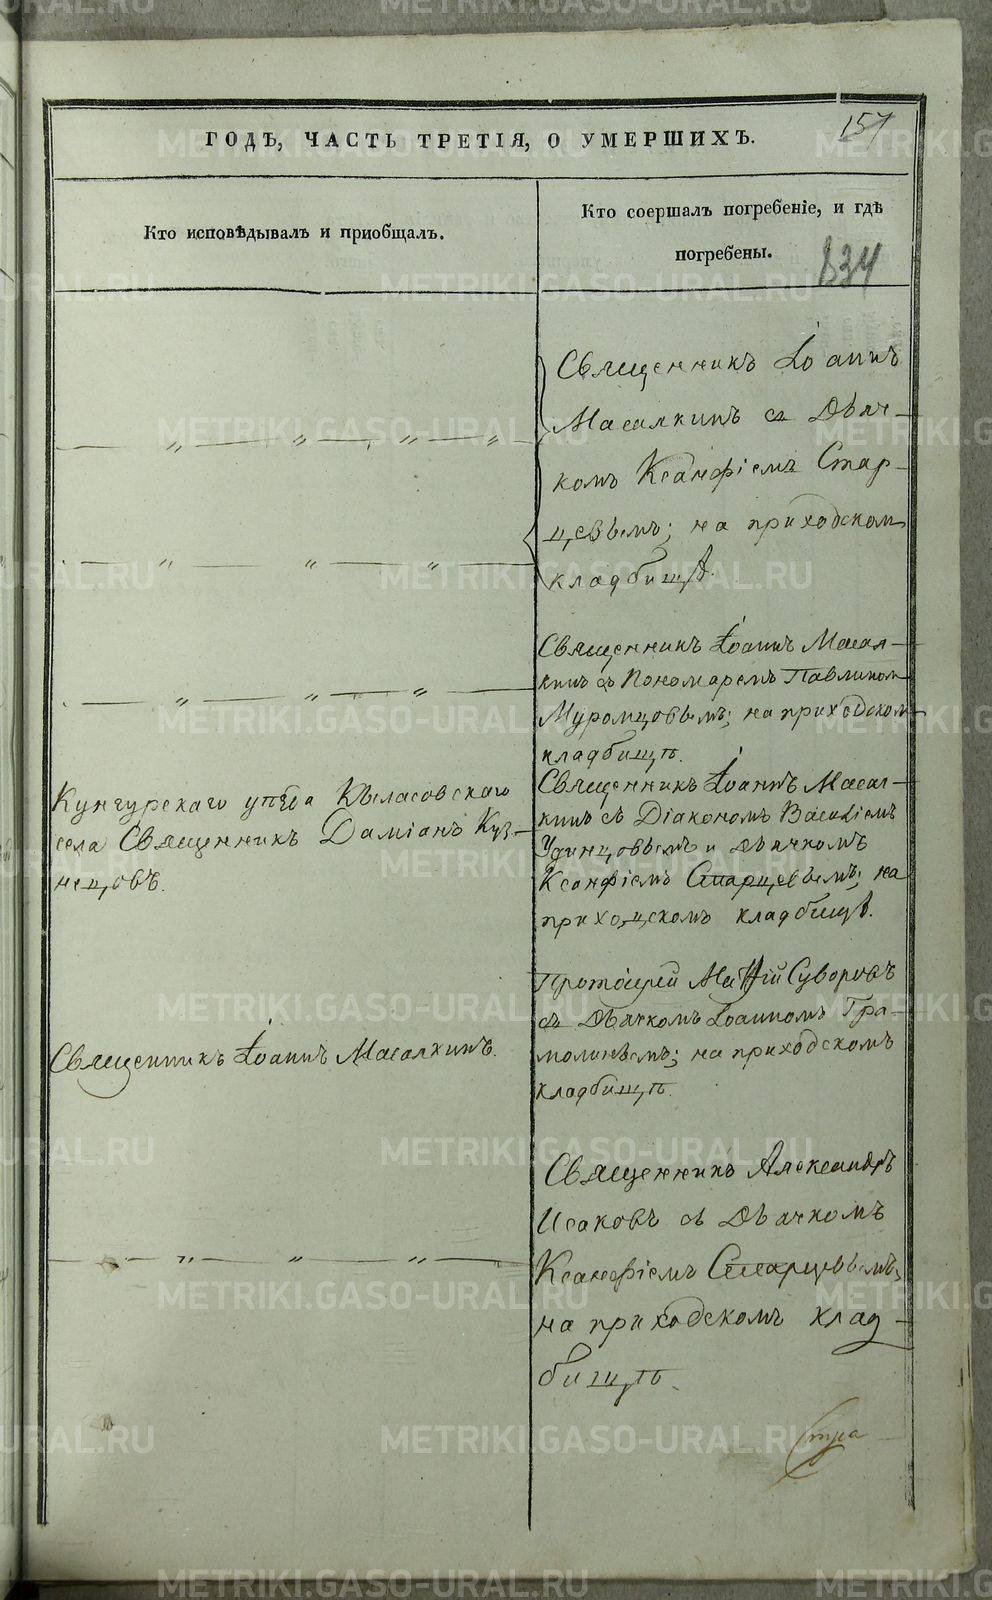 157
ГОДѢ, ЧАСТЬ ТРЕТІЯ, О УМЕРШИХЪ.
Кто исповѣдывалъ и пріобщалъ.
Кто соершалъ погребеніе, и гдѣ
погребены.
834
Священникъ Іоаннъ
Масалкинъ съ Дьяч-
комъ Ксанфіемъ Стар-
цевымъ; на приходском
кладбищѣ.
Священникъ Іоаннъ Масал-
кинъ съ Пономаремъ Павлином
Муромцовымъ; на приходском
кладбищѣ.
Кунгурскаго уѣзда Кыласовскаго
села Священникъ Даміанъ Куз-
нецовъ.
Священникъ Іоаннъ Масал-
кинъ съ Діакономъ Василіемъ
Удинцовымъ и дьячкомъ
Ксанфіемъ Старцевымъ; на
приходскомъ кладбищѣ.
Священникъ Іоаннъ Масалкинъ.
Протоіерей Матѳій Суворовъ
съ Дьячкомъ Іоанномъ Гра-
молинымъ; на приходскомъ
кладбищѣ.
Священникъ Александръ
Исаковъ съ Дьячкомъ
Ксанфіемъ Старцовымъ;
на приходскомъ клад-
бищѣ.
METRIKI.GASO-URAL.RU